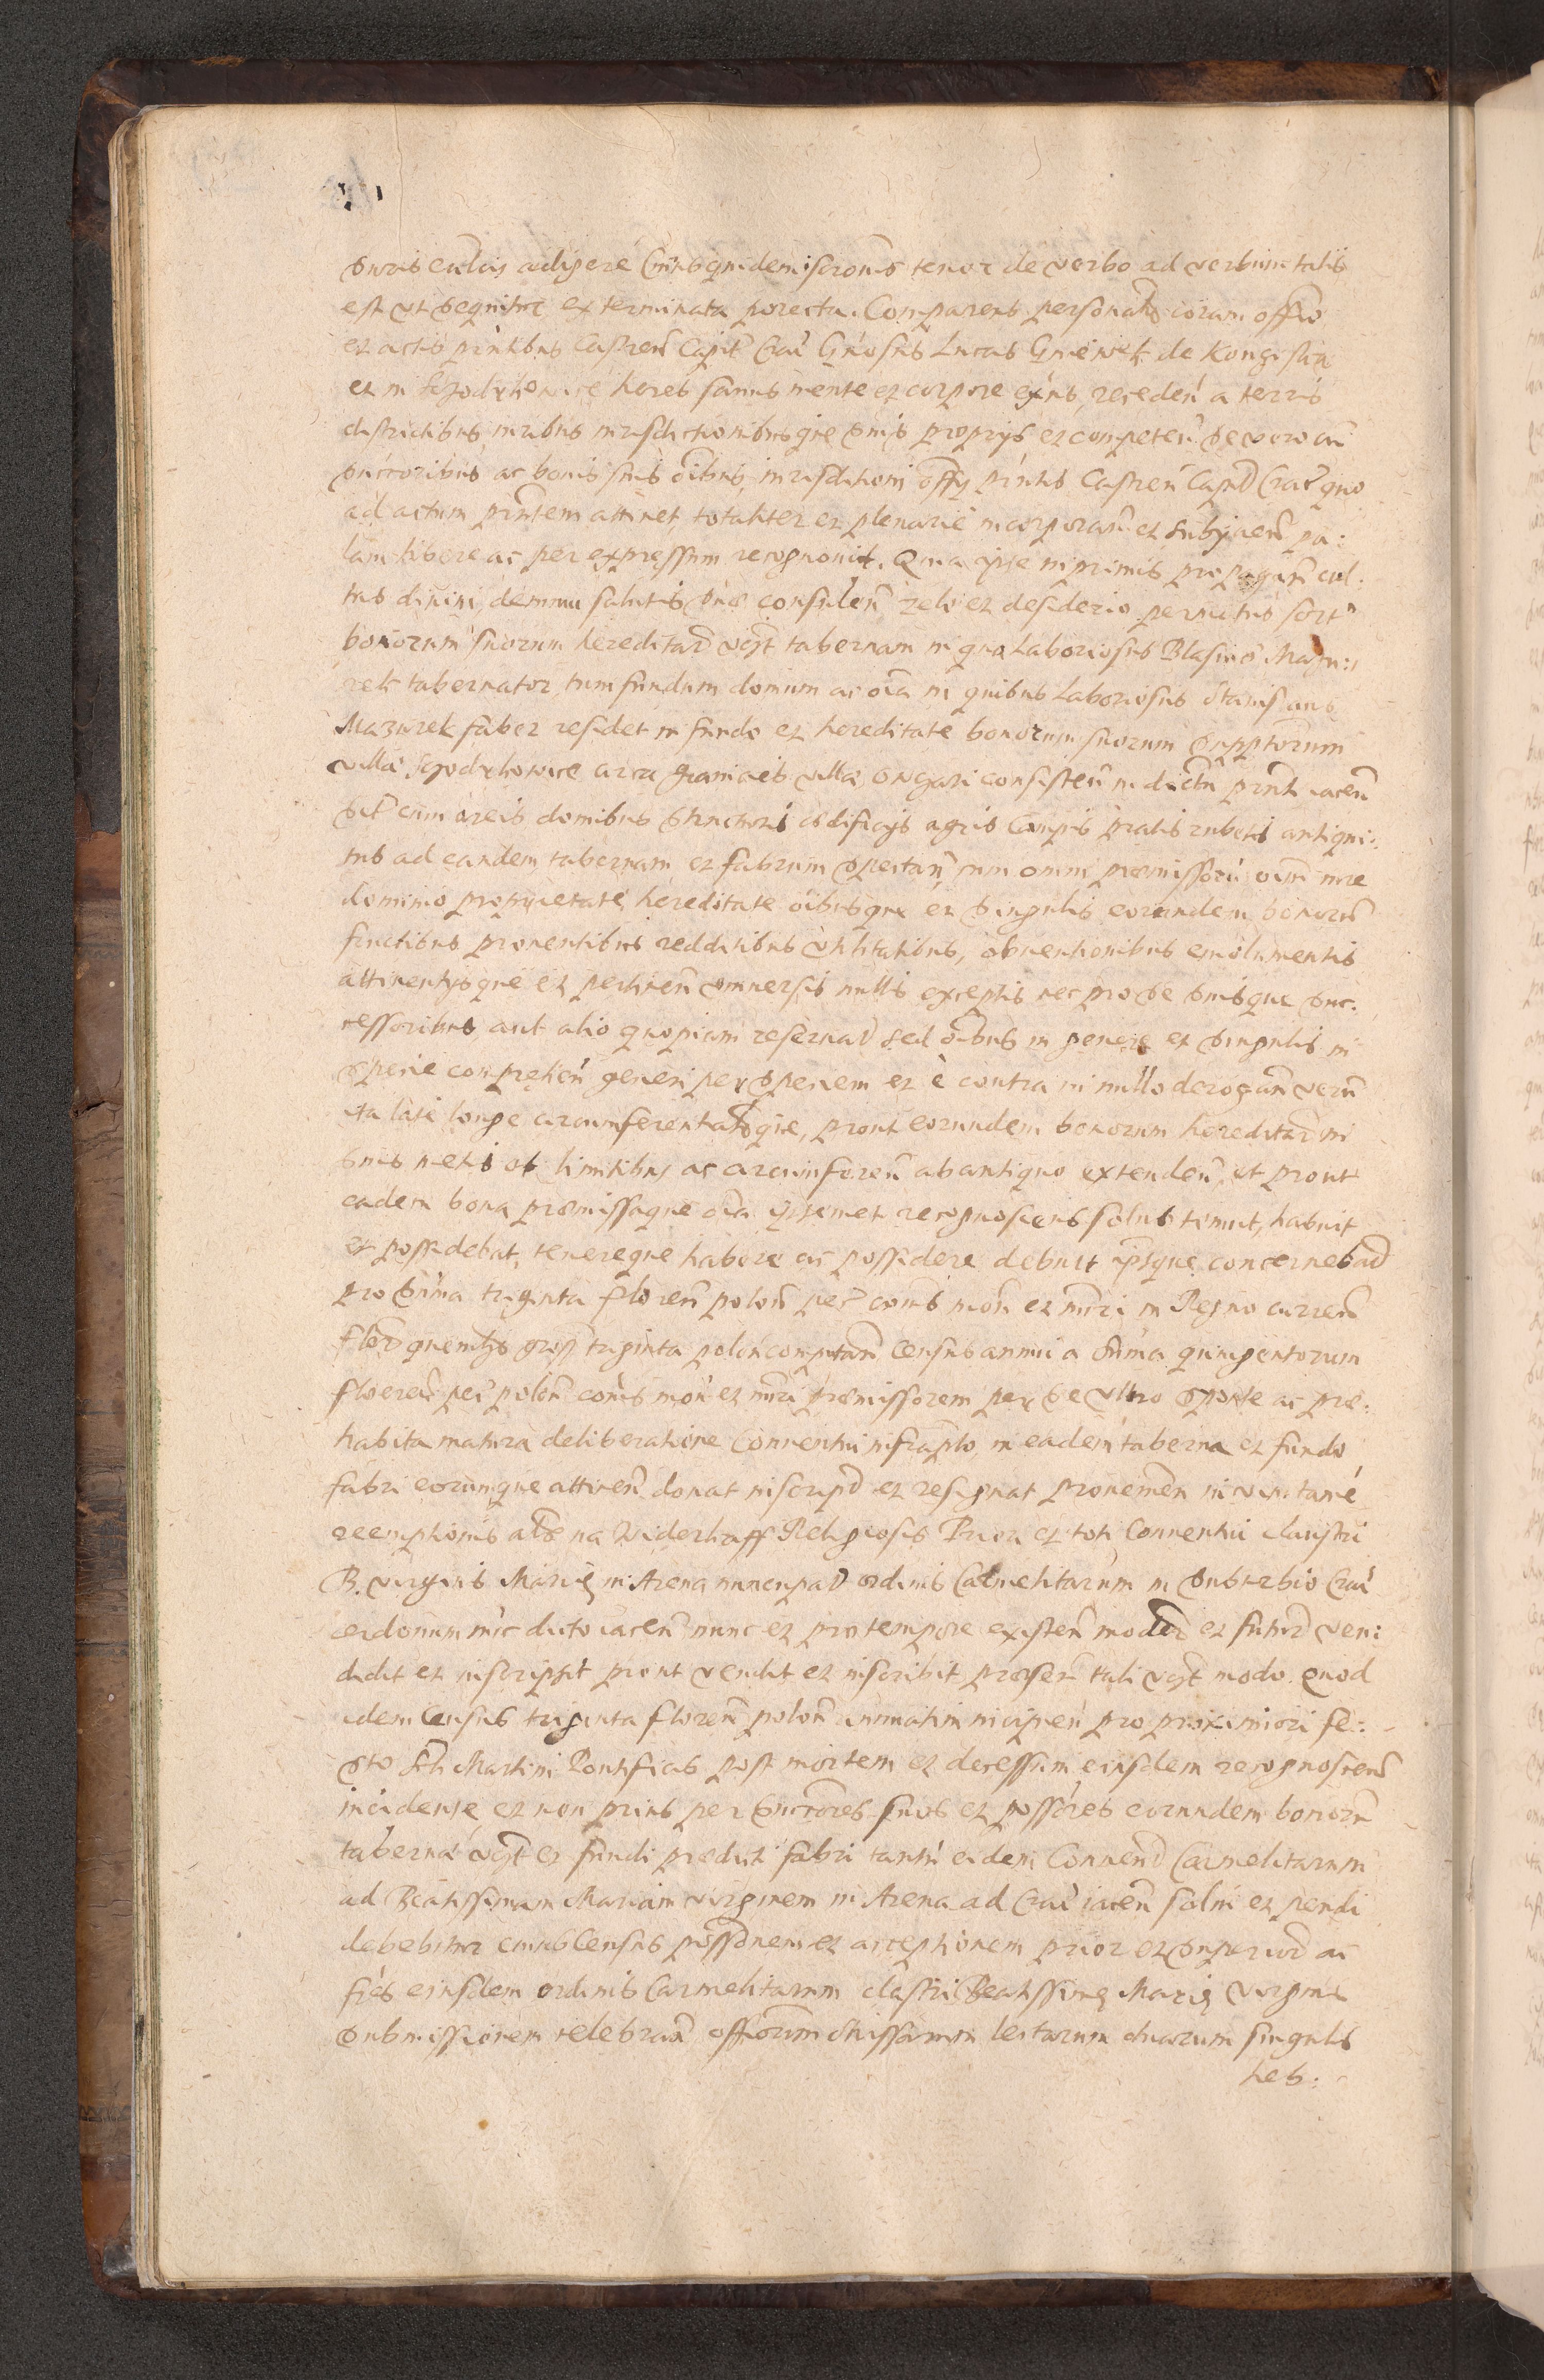 iuris calcu adigere Cuius quidem iscrōnis tenor de verbo ad verbum talis
est ut sequitur ex terminata porecta. Comparens personalr coram officio
et actis pñtibus Castreñ Capit Craċ Gñosus Lucas de
et in heres sanus mente et corpore exñs, recedeñ a terris
districtibus, iuribus iurisdictionibusque suis proprijs et competeñ se vero cū
successoribus ac bonis suis oībus, iurisdictioni offij pñtis Castreñ Capit Craċ quo
ad actum pñtem attinet, totaliter et plenarie incorporañ et subijcieñ pa:
lam libere ac per expressum recognovit. Quia ipse inprimis propagañ cul:
tus divini, demum salutis suæ consuleñ zelo et desiderio permotus sort
bonorum suorum hereditar vgt tabernam in qua Laboriosus Blasius Mazu:
rek tabernator, tum fundum domum ac oīa in quibus Laboriosus Stanislaus
Mazurek faber residet in fundo et hereditate bonorum suorum supptorum
villæ circa granicies villæ consisteñ in dictu pñti iaceñ
sit cum areis domibus structuris ædificijs agris Campis pratis rubetis antiqui:
tus ad eandem tabernam et fabrum spectañ cum omni præmissorū oīm iure
dominio proprietate, hereditate oībusque et singulis eorundem bonorū
fructibus proventibus redditibus utilitatibus, obventionibus emolumentis
attinentijsque et pertineñ universis nullis exceptis nec pro se suisque suc:
cessoribus aut alio quopiam reservat sed oībus in genere et singulis in
specie compreheñ generi per speciem et è contra in nullo derogañ verū
ita late longe circumferentialrque, prout eorundem bonorum hereditar in
suis metis et limitibus ac circumfereñ ab antiquo extendeñ et prout
eadem bona præmissaque oīa ipsemet recognoscens solus tenuit, habuit
et possidebat, tenereque habere ac possidere debuit ipsque concernebat
pro sum̄a triginta floreñ poloñ pec com̄s moñ et nūri in Regno curreñ
flor quemlts gross triginta poloñ computañ Census annui a sum̄a quingentorum
floreñ pec poloñ com̄s moñ et nūri præmissorem per se ultro sponte ac præ:
habita matura deliberatione Conventui infrapto in eadem taberna et fundo
fabri eorumque attineñ donat inscript et resignat in vim tamē
reemptionis als na Widerkaff Religiosis Priori et toti Conventui claustri
B. Virginis Mariæ in Arena nuncupat ordinis Carmelitarum in Suburbio Craċ
iaceñ nunc et pro tempore existeñ moder et futur ven:
didit et inscripsit prout vendit et inscribit præseñ tali vgt modo. Quod
idem Census triginta floreñ poloñ annuatim incipieñ pro proximiori fe:
sto Scti Martini Pontificis post mortem et decessum eiusdem recognosceñ
incidente et non prius per succrores suos et possōres eorundem bonorū
tabernæ vgt et fundi prædicti fabri tantū eidem Conveñ Carmelitarum
ad Beatissimam Mariam virginem in Arena ad Craċ iaceñ solui et pendi
debebitur cuius Census possōnem et acceptionem prior et superior ac
frēs eiusdem ordinis Carmelitarum claustri Beatissimæ Mariæ virginis
submissionem celebrañ officiorum Missarum lectarum duarum singulis
heb: